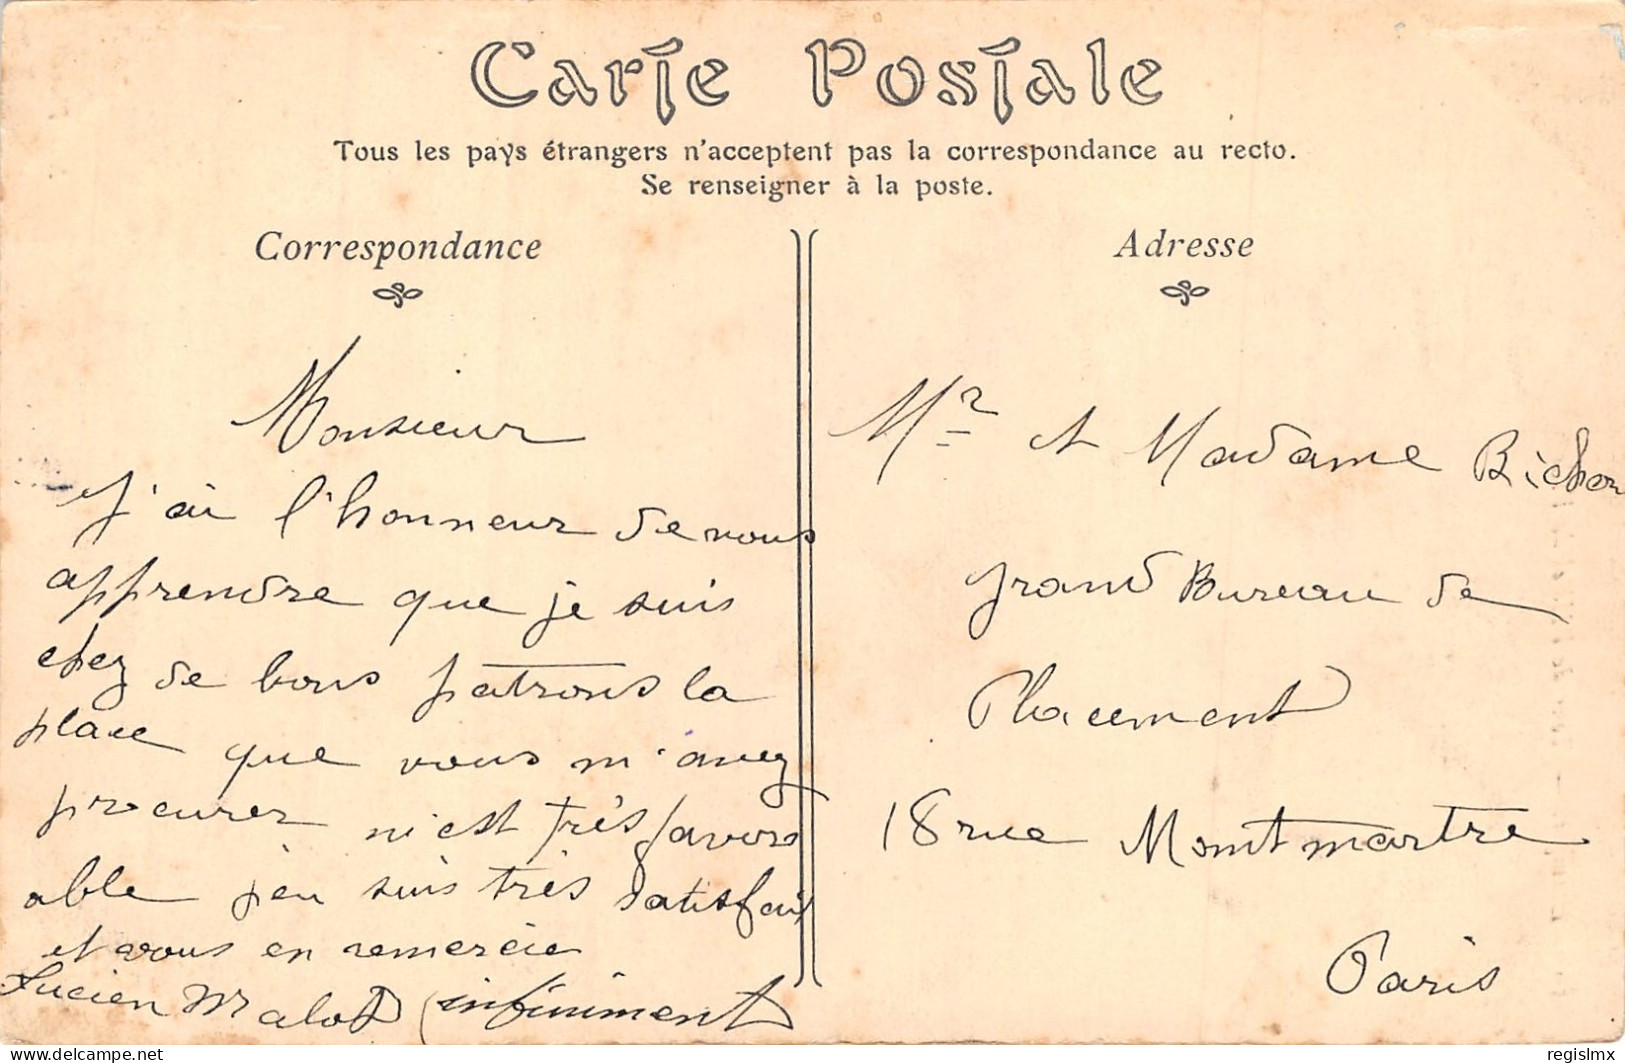 Carte Postale
Tous les pays étrangers n'acceptent pas la correspondance au recto.
Se renseigner à la poste.
Correspondance
Monsieur
J'ai l'honneur de vous
apprendre que je suis
chez de bons patrons la
place que vous m'avez
procurer m'est très favor
able j'en suis très satisfait
et vous en remercie
Lucien Malot (infiniment
Adresse
Mr et Madame Bichon
grand Bureau de
Placement
18 rue Montmartre
Paris
delcampe.net
regislmx